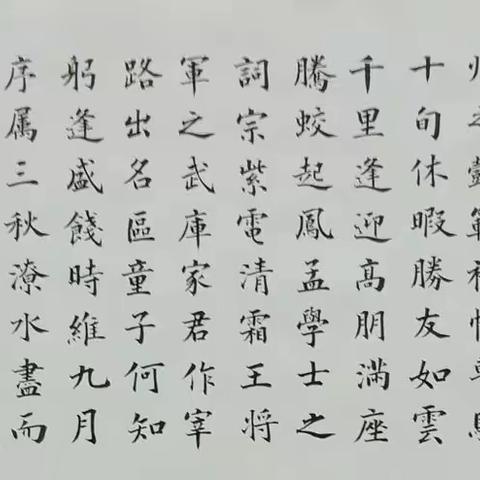 十旬休暇勝友如雲
千里逢迎高朋滿座
騰蛟起鳳孟學士之
詞宗紫電清霜王將
軍之武庫家君作宰
路出名區童子何知
躬逢盛餞時維九月
序属三秋潦水盡而